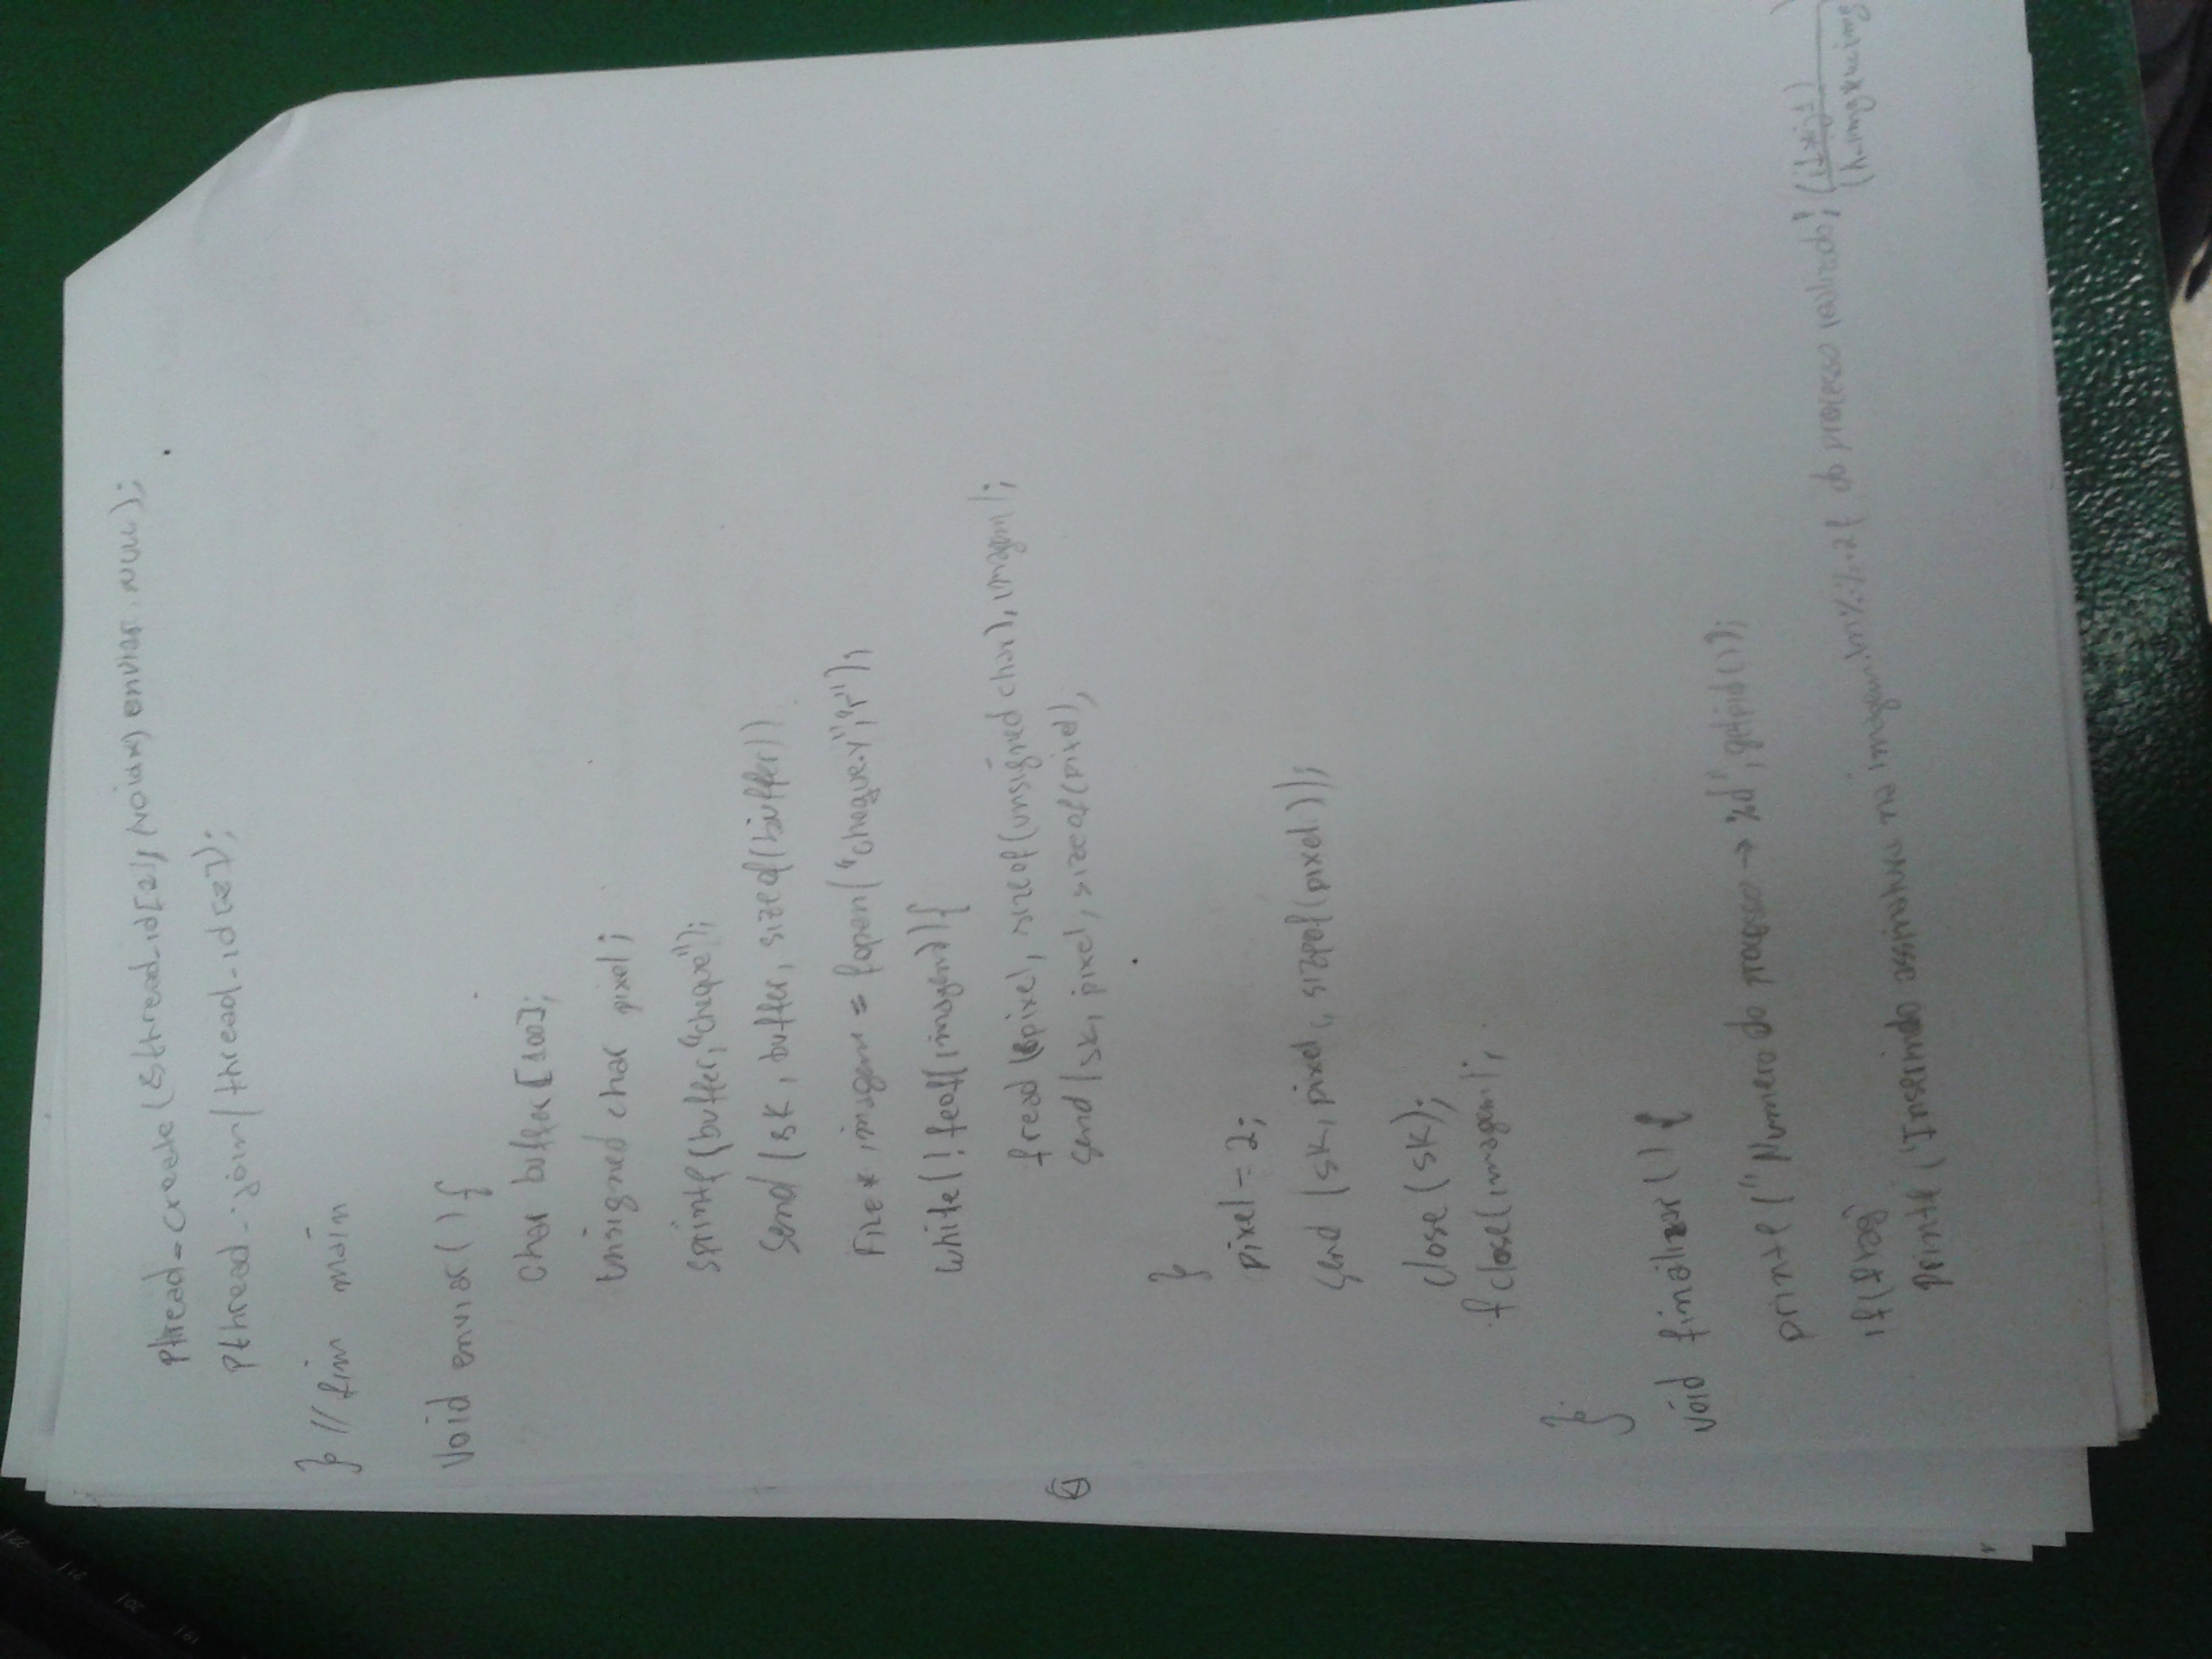 pthread_create(&thread_id[2], (void*) enviar, NULL);
pthread_join(thread_id[2]);
} // fim main
void enviar(){
char buffer[100];
unsigned char pixel;
sprintf(buffer,"cheque");
send(sk, buffer, sizeof(buffer))
FILE* imagem = fopen("cheque.y","r");
while(!feof(imagem)){
fread(&pixel, sizeof(unsigned char), imagem);
send(sk, pixel, sizeof(pixel),
}
pixel = 2;
send(sk, pixel, sizeof(pixel));
close(sk);
fclose(imagem);
}
void finalizar(){
printf("Numero do processo → %d", getpid());
if(flag)
printf("Inserindo assinatura na imagem.\n%%.2f do processo realizado", (i1*j1)
(h_img*w_img)